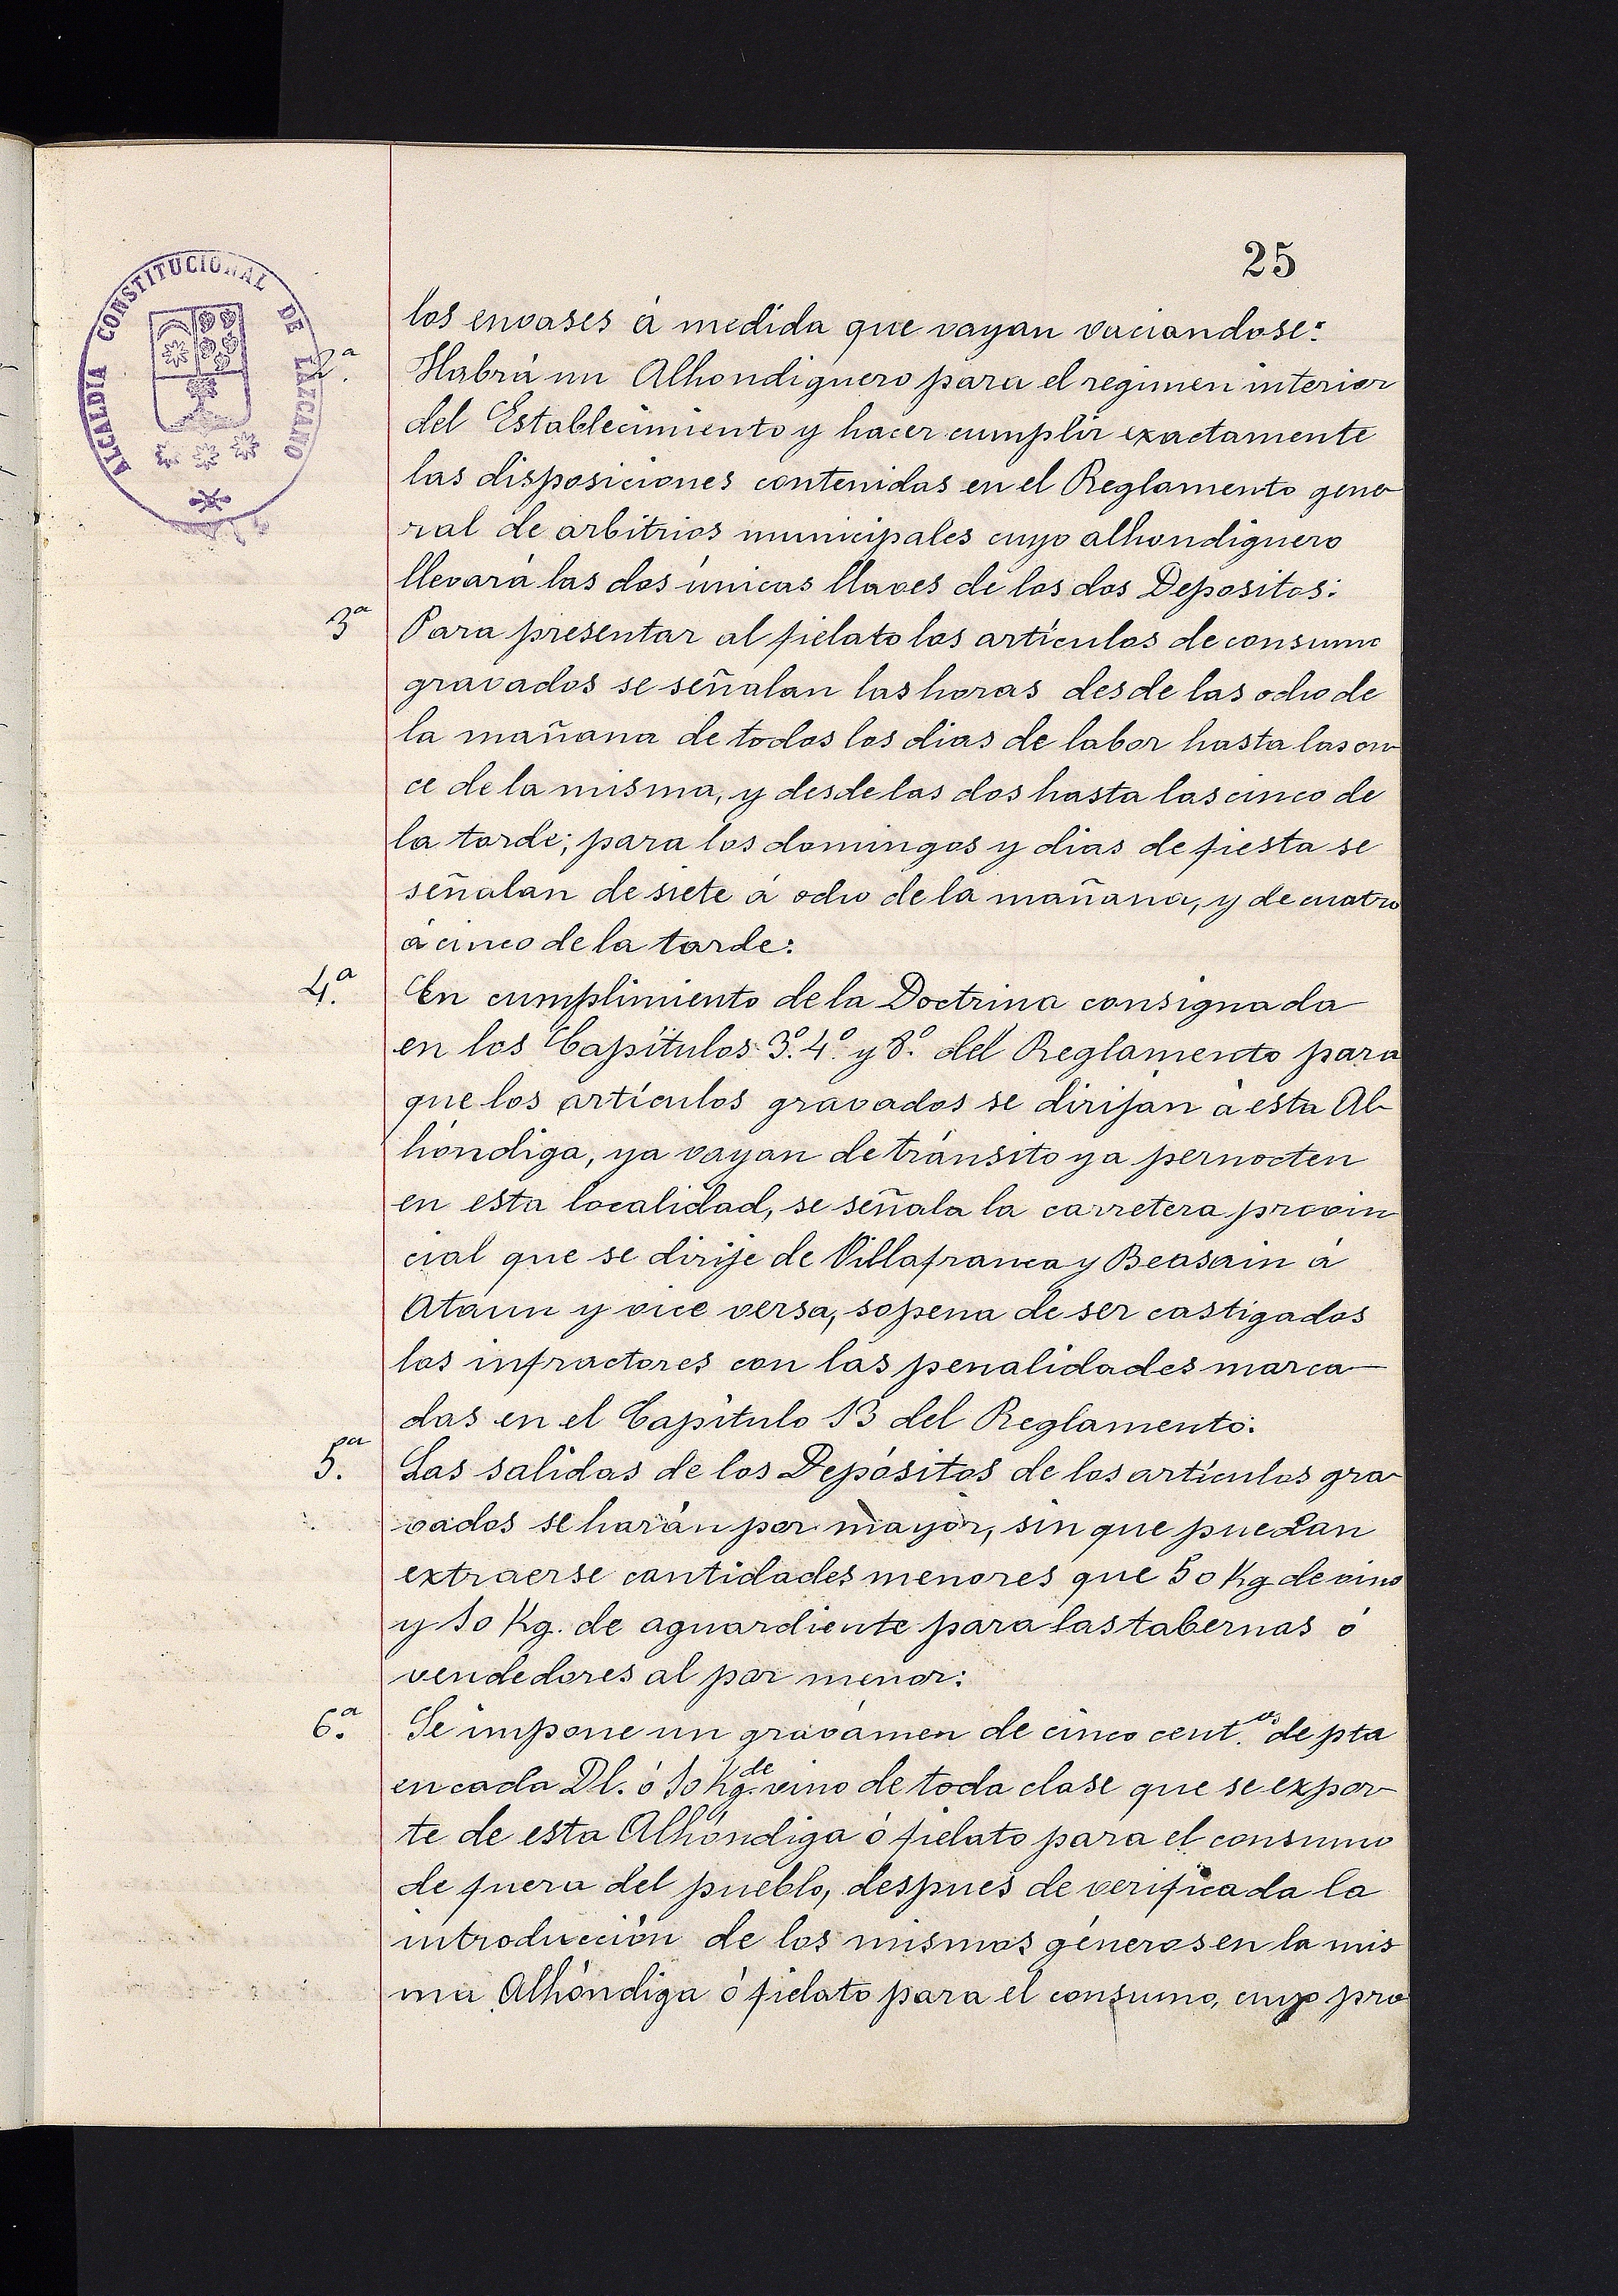 25
ALCALDÍA CONSTITUCIONAL DE LAZCANO
los envases á medida que vayan vaciandose:
2.ª Habrá un Alhondiguero para el regimen interior
del Establecimiento y hacer cumplir exactamente
las disposiciones contenidas en el Reglamento gene
ral de arbitrios municipales cuyo alhondiguero
llevará las dos únicas llaves de los dos Depositos:
3ª Para presentar al fielato los artículos de consumo
gravados se señalan las horas desde las ocho de
la mañana de todos los dias de labor hasta las on
ce de la misma, y desde las dos hasta las cinco de
la tarde; para los domingos y dias de fiesta se
señalan de siete á ocho de la mañana, y de cuatro
á cinco de la tarde:
4.ª En cumplimiento de la Doctrina consignada
en los Capítulos 3º. 4º. y 8º. del Reglamento para
que los artículos gravados se dirijan á esta Al-
hóndiga, ya vayan de tránsito ya pernocten
en esta localidad, se señala la carretera provin
cial que se dirije de Villafranca y Beasain á
Ataun y vice versa, sopena de ser castigados
los infractores con las penalidades marca-
das en el Capítulo 13 del Reglamento:
5.ª Las salidas de los Depósitos de los artículos gra-
vados se harán por mayor, sin que puedan
extraerse cantidades menores que 50 Kg de vino
y 10 Kg. de aguardiente para las tabernas ó
vendedores al por menor:
6.ª Se impone un gravámen de cinco cent.os de pta
en cada Dl. ó 10 Kg. de vino de toda clase que se expor-
te de esta Alhóndiga ó fielato para el consumo
de fuera del pueblo, después de verificada la
introducción de los mismos géneros en la mis
ma Alhóndiga ó fielato para el consumo, cuyo pro